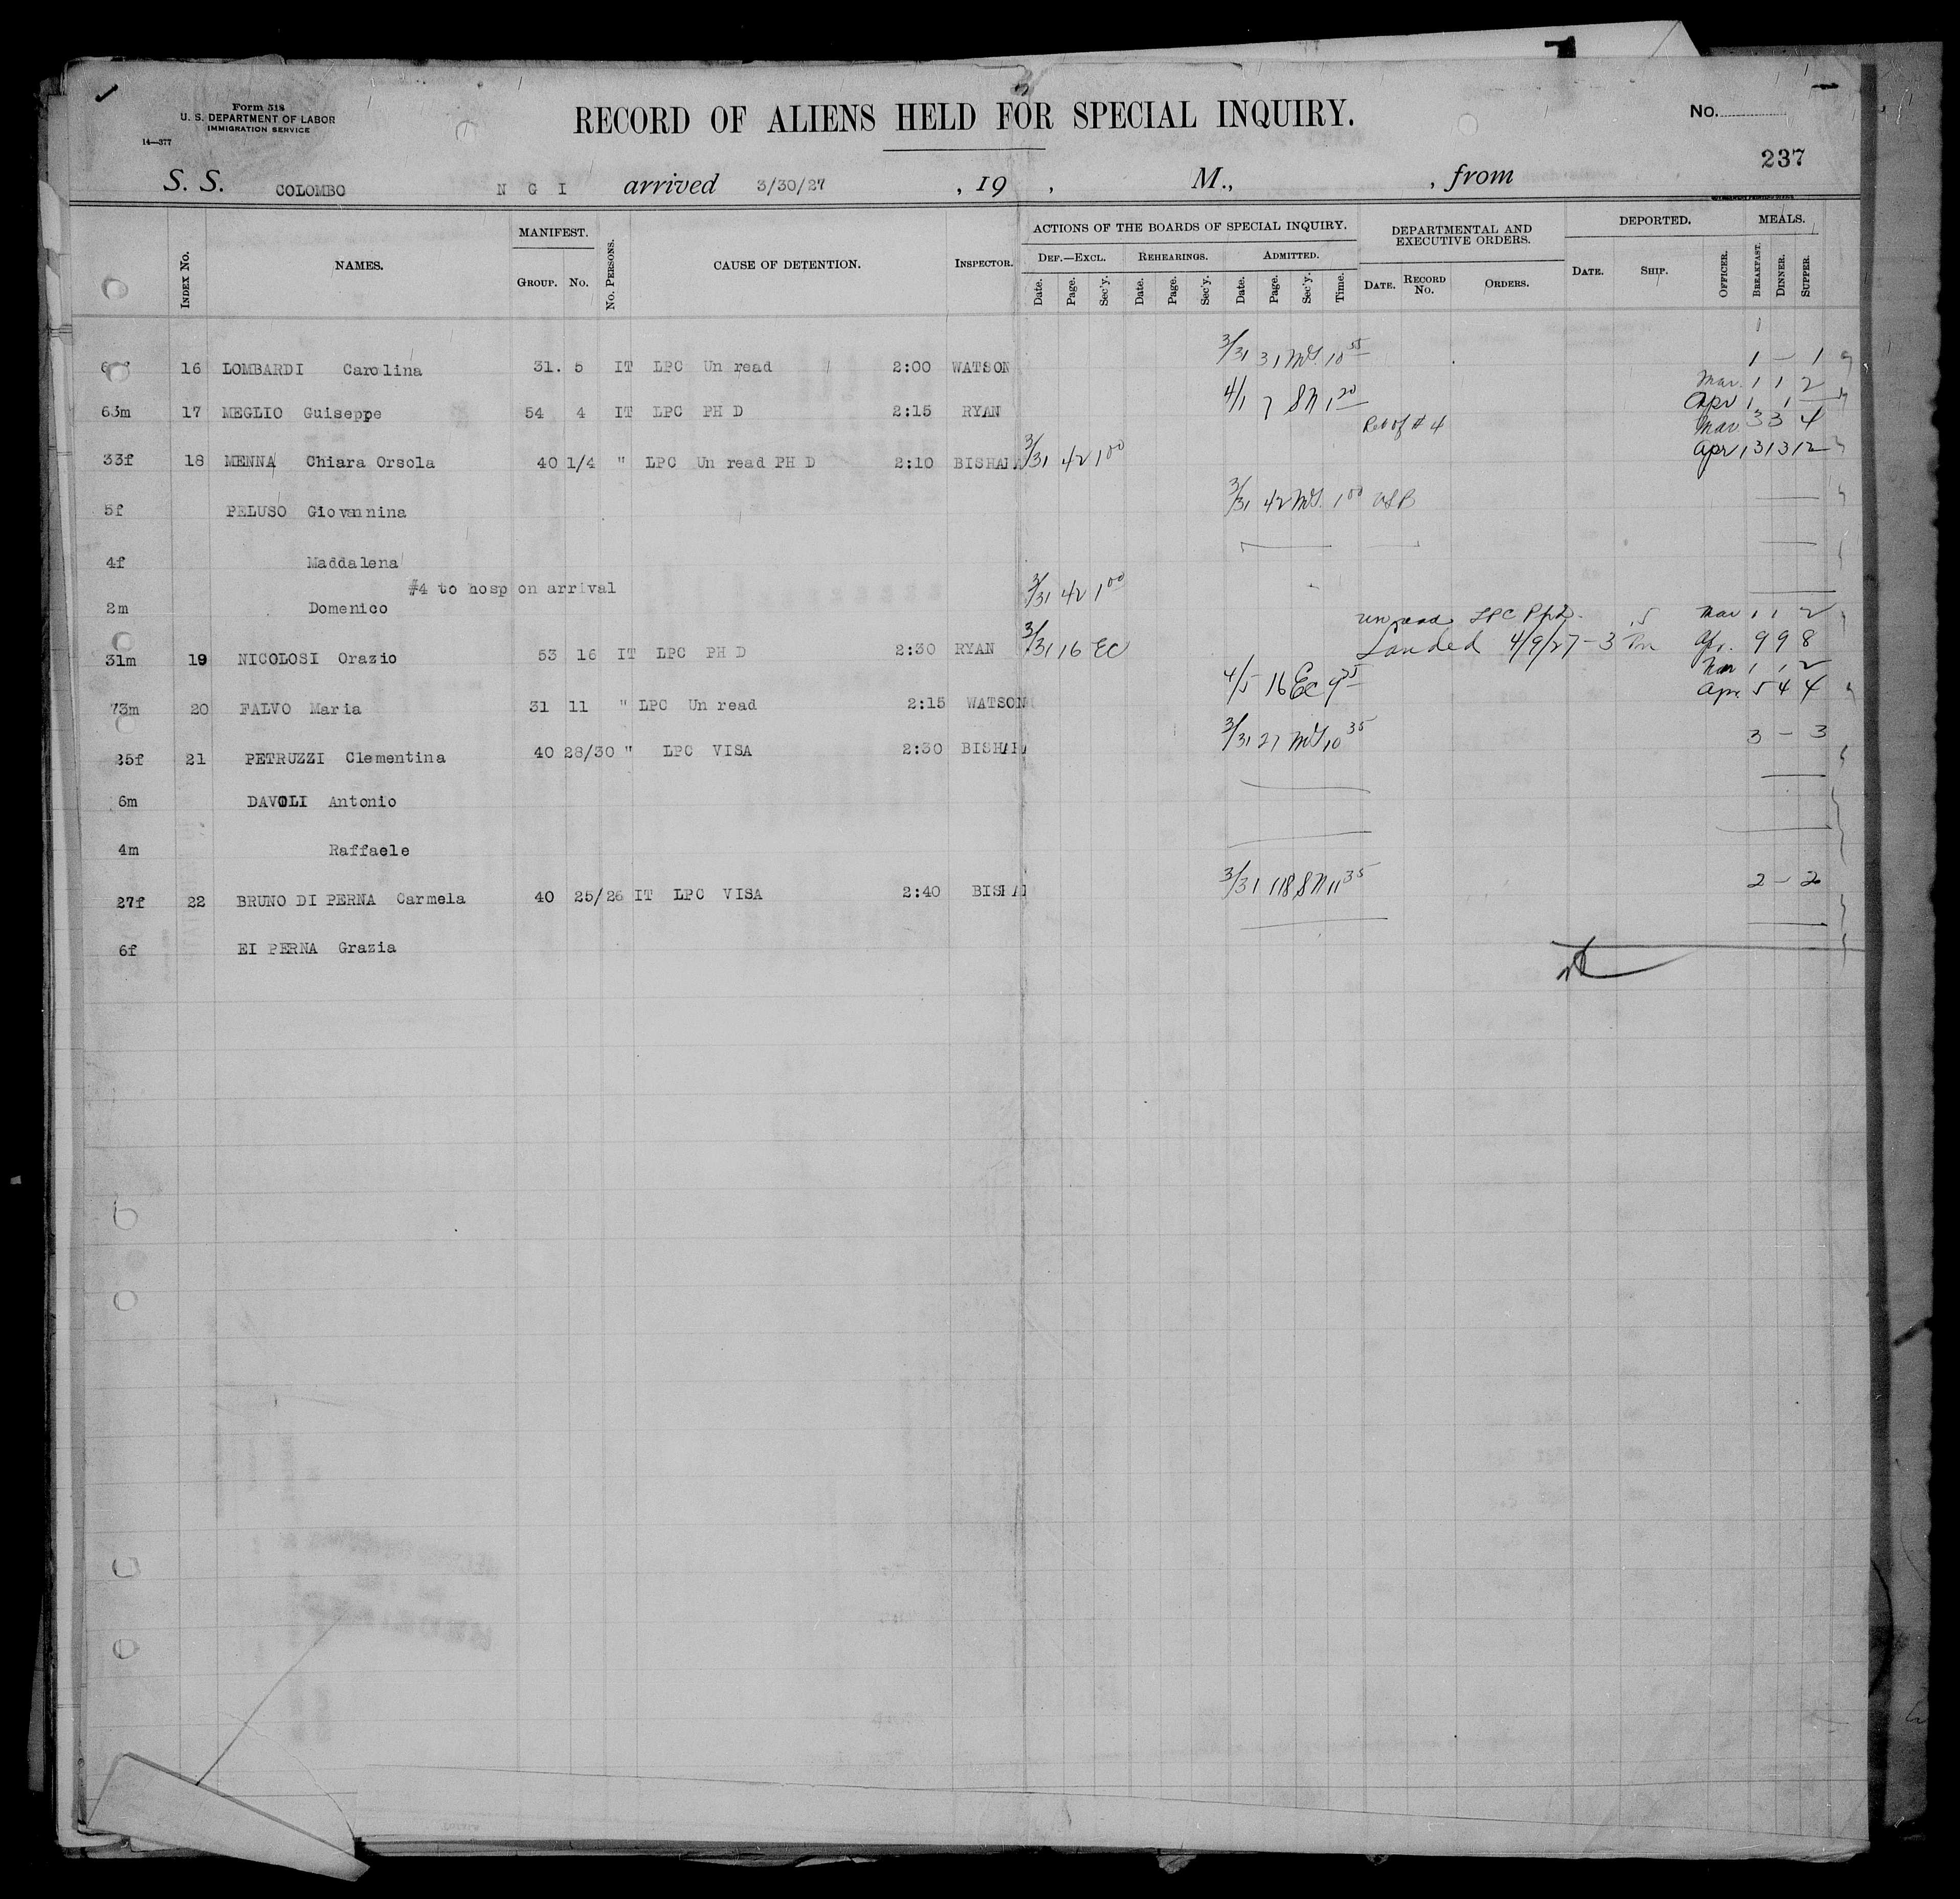 Form 518
U. S. DEPARTMENT OF LABOR
IMMIGRATION SERVICE
14—377
RECORD OF ALIENS HELD FOR SPECIAL INQUIRY.
No.
237
S. S. COLOMBO N G I arrived 3/30/27 , 19 , M., , from
INDEX No. NAMES. MANIFEST. GROUP. No. No. PERSONS. CAUSE OF DETENTION. INSPECTOR. ACTIONS OF THE BOARDS OF SPECIAL INQUIRY. DEF.—EXCL. Date. Page. Sec'y. REHEARINGS. Date. Page. Sec'y. ADMITTED. Date. Page. Sec'y. Time. DEPARTMENTAL AND EXECUTIVE ORDERS. DATE. RECORD No. ORDERS. DEPORTED. DATE. SHIP. OFFICER. MEALS. BREAKFAST. DINNER. SUPPER.
16 LOMBARDI Carolina 31. 5 IT LPC Un read 2:00 WATSON 3/31 31 10 55 1 – 1
Mar. 1 1 2
63m 17 MEGLIO Guiseppe 54 4 IT LPC PH D 2:15 RYAN 4/1 7 SN 1 20 Apr 1 1 —
Rel of # 4 Mar 3 3 4
33f 18 MENNA Chiara Orsola 40 1/4 " LPC Un read PH D 2:10 BISHA 3/31 42 1 00 Apr 13 13 12
5f PELUSO Giovannina 3/31 42 1 00
4f Maddalena
#4 to hosp on arrival
2m Domenico 3/31 42 1 00
un read LPC Mar 1 1 2
31m 19 NICOLOSI Orazio 53 16 IT LPC PH D 2:30 RYAN 3/31 16 EC Landed 4/9/27 – 3 Apr. 9 9 8
Mar 1 1 2
73m 20 FALVO Maria 31 11 " LPC Un read 2:15 WATSON 4/5 16 EC 9 25 Apr. 5 4 4
25f 21 PETRUZZI Clementina 40 28/30 " LPC VISA 2:30 BISHA 3/31 27 10 35 3 – 3
6m DAVOLI Antonio
4m Raffaele
27f 22 BRUNO DI PERNA Carmela 40 25/26 IT LPC VISA 2:40 BISHA 3/31 118 SN 11 35 2 – 2
6f EI PERNA Grazia